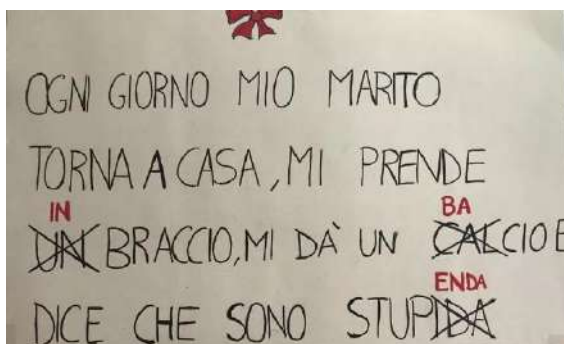 OGNI GIORNO MIO MARITO
TORNA A CASA, MI PRENDE
IN BA
UN BRACCIO, MI DÀ UN CALCIO E
ENDA
DICE CHE SONO STUPIDA